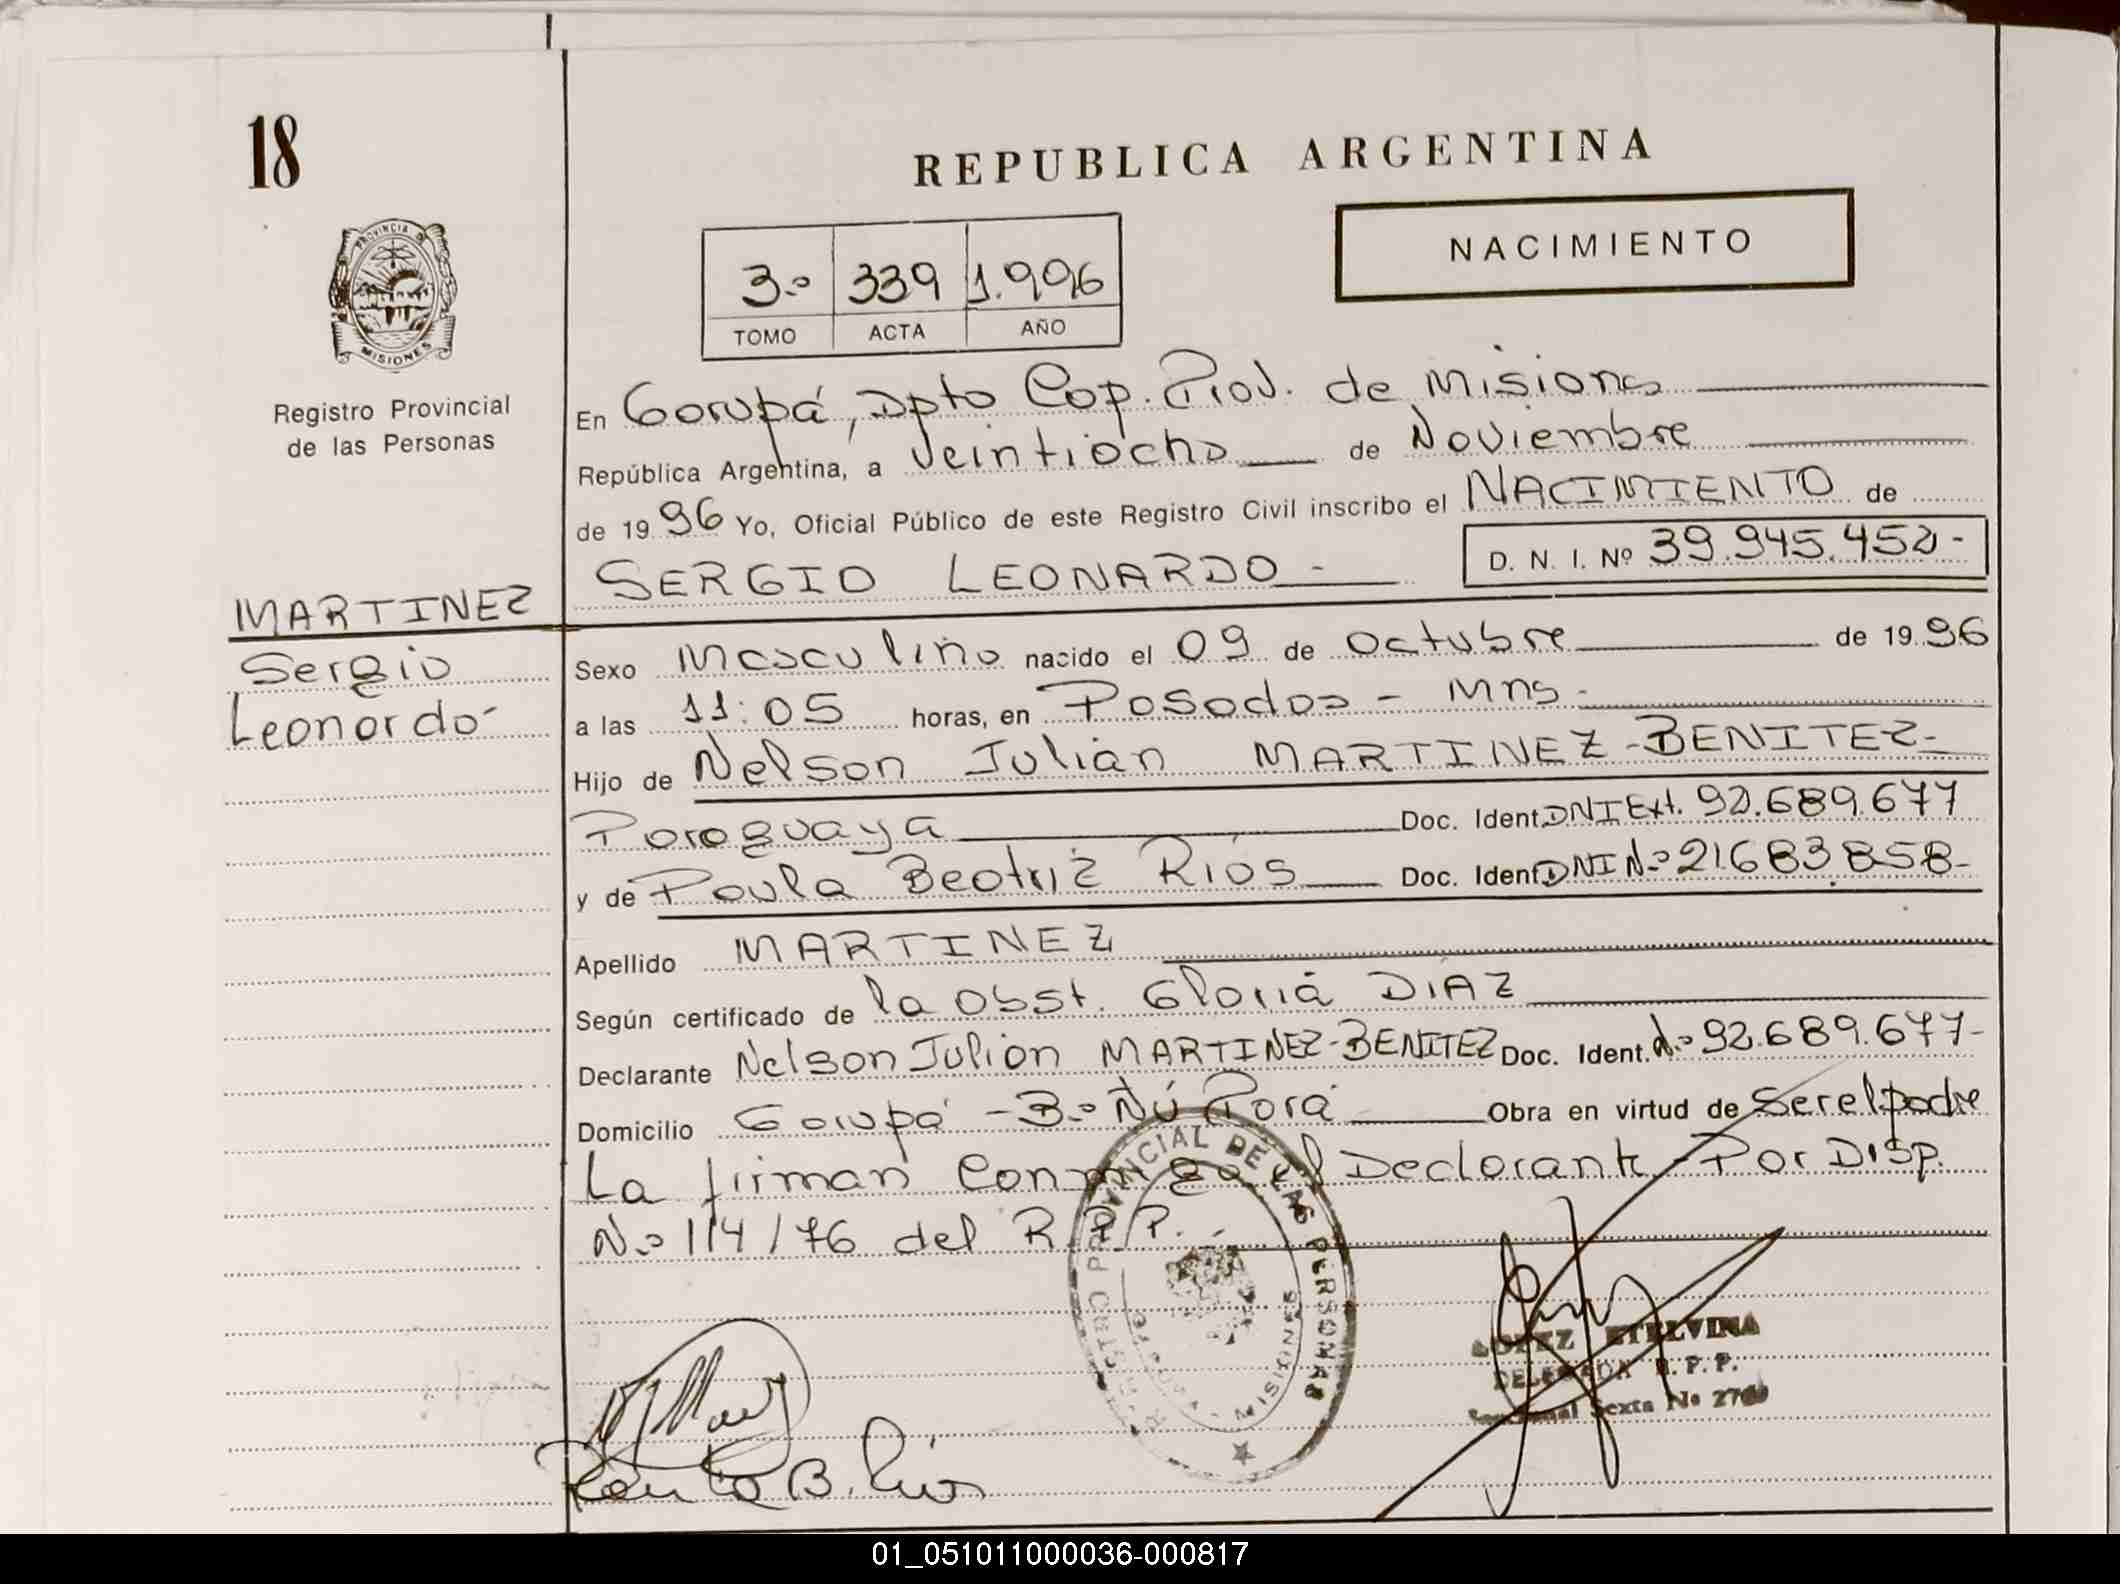 18
REPUBLICA ARGENTINA
NACIMIENTO
3.º 339 1.996
TOMO ACTA AÑO
PROVINCIA DE
MISIONES
Registro Provincial
de las Personas
En Garupá, Dpto Cap. Prov. de Misiones
República Argentina, a Veintiocho de Noviembre
de 1996 Yo, Oficial Público de este Registro Civil inscribo el NACIMIENTO de
SERGIO LEONARDO - D. N. I. Nº 39.945.452-
MARTINEZ
Sergio
Leonardo-
Sexo Masculino nacido el 09 de Octubre de 1996
a las 11:05 horas, en Posadas - Mns.
Hijo de Nelson Julián MARTINEZ-BENITEZ-
Paraguaya Doc. Ident. DNI Ext. 92.689.677
y de Paula Beatriz Ríos Doc. Ident. DNI N.º 21.683.858-
Apellido MARTINEZ
Según certificado de la Obst. Gloria DIAZ
Declarante Nelson Julián MARTINEZ-BENITEZ Doc. Ident. N.º 92.689.677-
Domicilio Garupá - B.º Ñú Porá Obra en virtud de Ser el padre
La firman Conmigo el Declarante - Por Disp.
N.º 114/76 del R.P.P.
REGISTRO PROVINCIAL DE LAS PERSONAS
MISIONES
LOPEZ ETELVINA
DELEGADA R. P. P.
Seccional Sexta Nº
B. Ríos
01_051011000036-000817